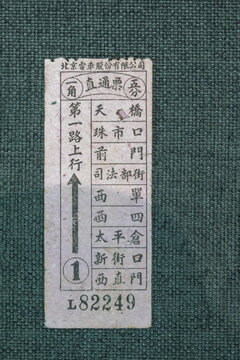 北京電車股份有限公司
一角 直通票 五分
第一路上行
天橋
珠市口
前門
司法部街
西單
西四
太平倉
新街口
西直門
1
L82249